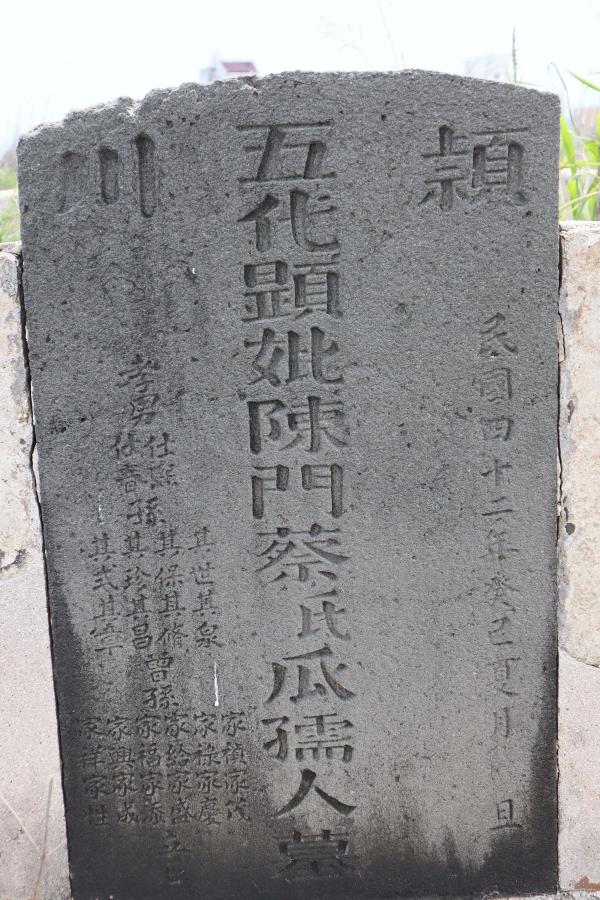 頴川
民國四十二年癸巳夏月 旦
五代顕妣陳門蔡氏瓜孺人墓
孝男
仕熙
仕春
孫
其世其泉
其保其脩
其珍其昌
其式其章
曾孫
家禎家茂
家祿家慶
家給家盛
家福家添
家興家成
家祥家性
立石